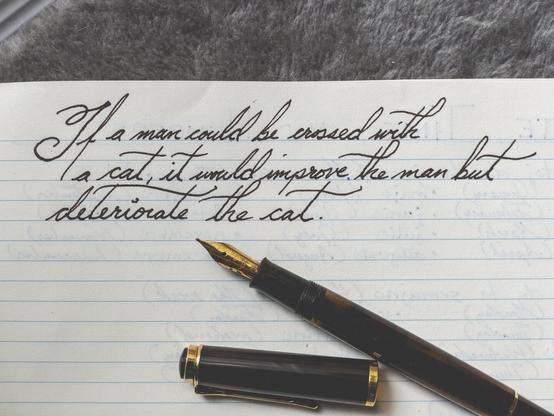 If a man could be crossed with
a cat, it would improve the man but
deteriorate the cat.